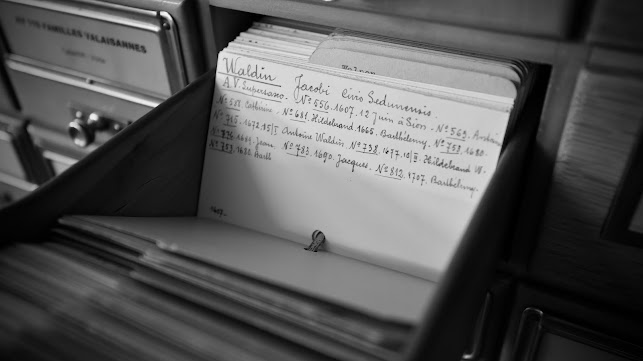 AV 115 FAMILLES VALAISANNES
Waldin Jacobi Civis Sedunensis.
A.V. Supersaxo. No 556. 1607. 12 Juin à Sion. No 569. Antoine
No 581. No 681. Hildebrand. 1665. Barthélemy. No 758. 1680.
No 705. 1672. 15/I Antoine Waldin. No 738. 1677. 15/II. Hildebrand W.
No 736. Jean No 783. 1690. Jacques. No 812. 1707. Barthélemy.
No 753. 1682 Barth
1607.